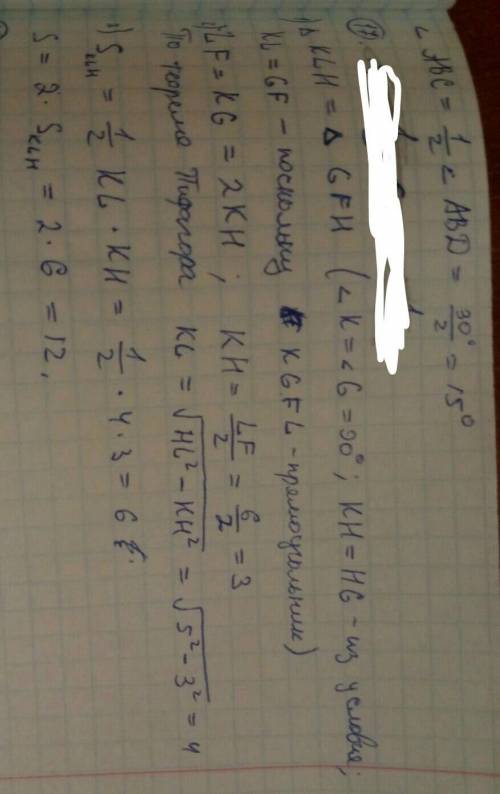 ∠ABC = 1/2 ∠ABD = 30°/2 = 15°
17.
1) △KLH = △GFH (∠K = ∠G = 90°; KH = HG - из условия;
KL = GF - поскольку KGFL - прямоугольник)
2) LF = KG = 2KH; KH = LF/2 = 6/2 = 3
По теореме Пифагора KL = √(HL² - KH²) = √(5² - 3²) = 4
3) S = 1/2 KL · KH = 1/2 · 4 · 3 = 6
S = 2 · S = 2 · 6 = 12.